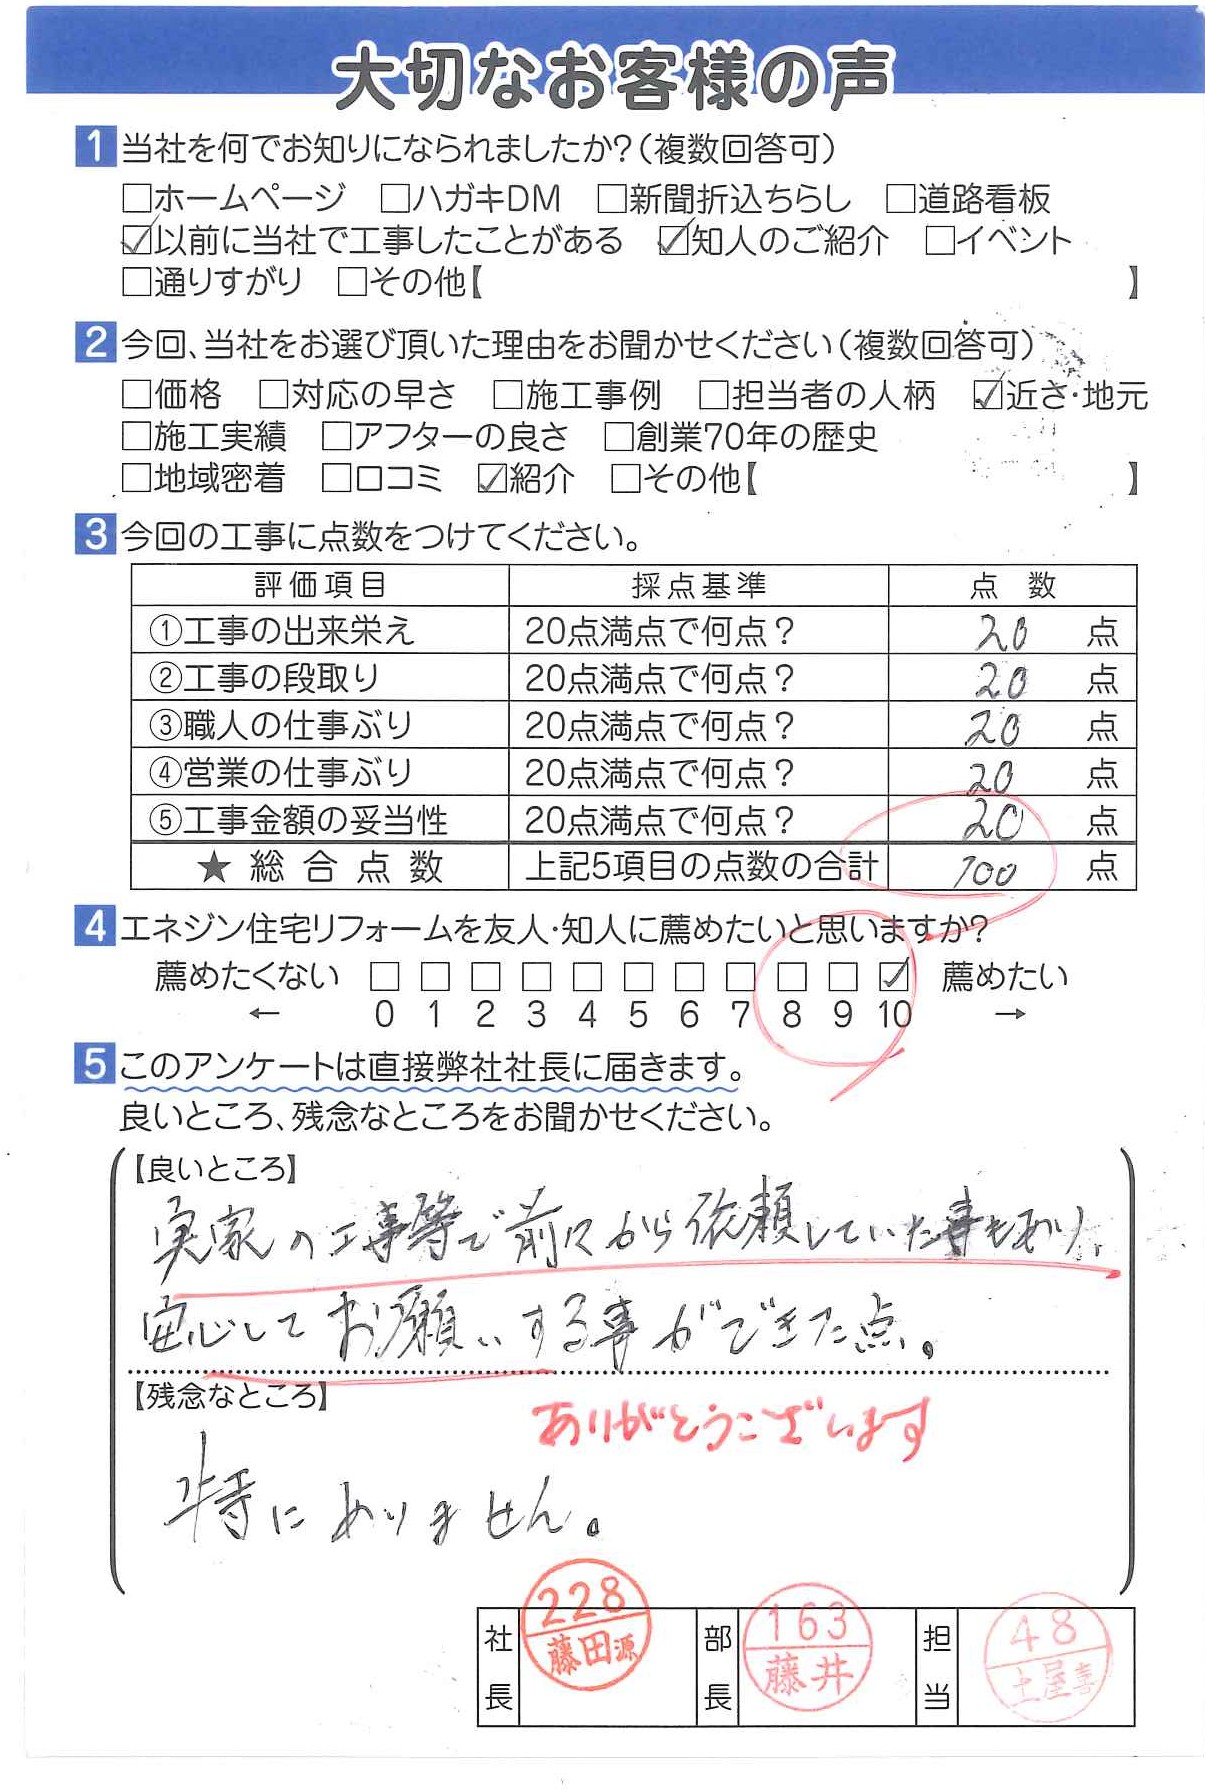 大切なお客様の声
1 当社を何でお知りになられましたか?(複数回答可)
□ホームページ □ハガキDM □新聞折込ちらし □道路看板
☑以前に当社で工事したことがある ☑知人のご紹介 □イベント
□通りすがり □その他【 】
2 今回、当社をお選び頂いた理由をお聞かせください(複数回答可)
□価格 □対応の早さ □施工事例 □担当者の人柄 ☑近さ・地元
□施工実績 □アフターの良さ □創業70年の歴史
□地域密着 □口コミ ☑紹介 □その他【 】
3 今回の工事に点数をつけてください。
評価項目 採点基準 点 数
①工事の出来栄え 20点満点で何点? 20 点
②工事の段取り 20点満点で何点? 20 点
③職人の仕事ぶり 20点満点で何点? 20 点
④営業の仕事ぶり 20点満点で何点? 20 点
⑤工事金額の妥当性 20点満点で何点? 20 点
★総合点数 上記5項目の点数の合計 100 点
4 エネジン住宅リフォームを友人・知人に薦めたいと思いますか?
薦めたくない □ □ □ □ □ □ □ □ □ □ ☑ 薦めたい
← 0 1 2 3 4 5 6 7 8 9 10 →
5 このアンケートは直接弊社社長に届きます。
良いところ、残念なところをお聞かせください。
【良いところ】
実家の工事等で前々から依頼していた事もあり、
安心してお願いする事ができた点。
【残念なところ】
ありがとうございます
特にありません。
社長 228 藤田源 部長 163 藤井 担当 48 土屋喜